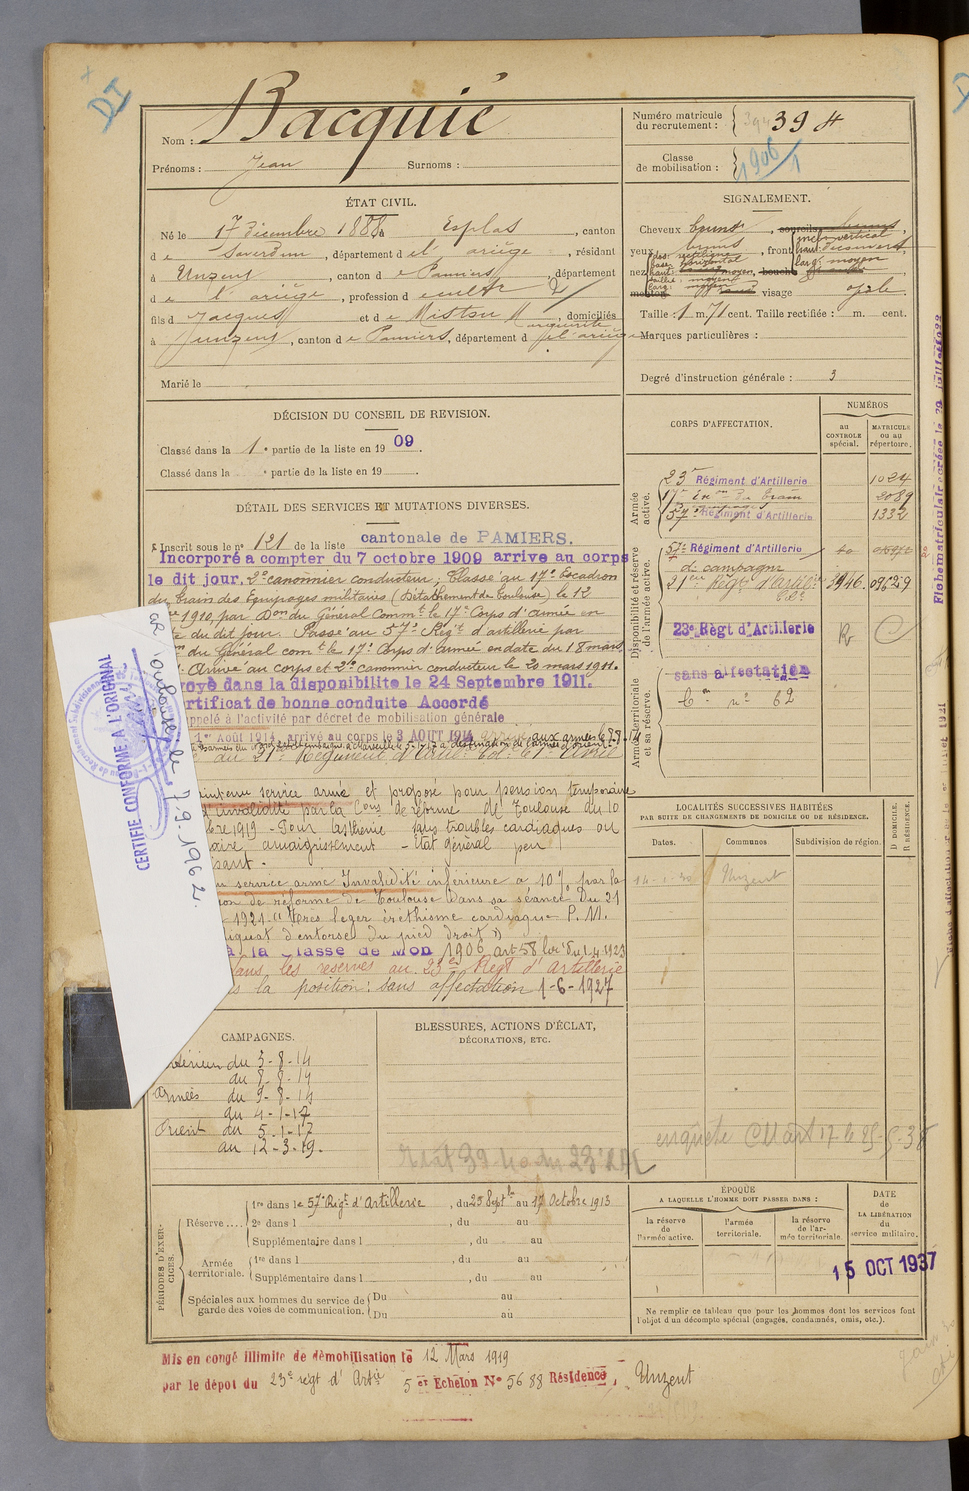 DI
Nom : Bacquié
Prénoms : Jean Surnoms :
Numéro matricule du recrutement : 394 394
Classe de mobilisation : 1906/1
ÉTAT CIVIL.
Né le 17 Décembre 1888 à Esplas, canton
de Saverdun, département de l'ariège, résidant
à Unzent, canton de Pamiers, département
de l'ariège, profession de cult^r 2
fils de Jacques et de Miston Marguerite, domiciliés
à Unzent, canton de Pamiers, département de l'ariège
Marié le
SIGNALEMENT.
Cheveux bruns, sourcils bruns,
yeux bruns, front inclin: vertical haut: Découvert larg: moyen
nez dos: rectiligne base: horizontal haut: moyen saillie: moyen larg: moyen, bouche
menton visage ovale.
Taille : 1 m. 71 cent. Taille rectifiée : m. cent.
Marques particulières :
Degré d'instruction générale : 3
DÉCISION DU CONSEIL DE REVISION.
Classé dans la 1e partie de la liste en 1909.
Classé dans la e partie de la liste en 19 .
DÉTAIL DES SERVICES ET MUTATIONS DIVERSES.
Inscrit sous le n° 121 de la liste cantonale de PAMIERS.
Incorporé à compter du 7 octobre 1909 arrivé au corps
le dit jour. 2e canonnier conducteur; Classé au 17e Escadron
du train des Equipages militaires (Détachement de Toulouse) le 12
1910, par Don du Général Commt le 17e Corps d'armée en
du dit jour. Passé au 57e Régt d'artillerie par
du Général comt le 17e Corps d'Armée en date du 18 mars
Arrivé au corps et 2e canonnier conducteur le 20 mars 1911.
voyé dans la disponibilité le 24 Septembre 1911.
rtificat de bonne conduite Accordé
appelé à l'activité par décret de mobilisation générale
1er Août 1914, arrivé au corps le 3 AOUT 1914 aux armées le 9-8-14
à destination de l'armée d'orient
au 21e Régiment d'Artie
maintenu service armé et proposé pour pension temporaire
d'invalidité par la Cons de réforme de Toulouse du 10
bre 1919 - Pour asthénie sans troubles cardiaques ou
amaigrissement - Etat général peu
sant.
service armé Invalidité inférieure à 10% par la
ion de réforme de Toulouse dans sa séance du 21
1921 "Très léger éréthisme cardiaque P. M.
liquat d'entorse du pied droit"
à la Classe de Mon 1906 art 58 loi du 1-4-1923
dans les réserves au 23e Régt d'artillerie
la position: sans affectation 1-6-1927
CERTIFIÉ CONFORME A L'ORIGINAL
le 7-9-1962
CORPS D'AFFECTATION.
NUMÉROS
au CONTROLE spécial.
MATRICULE ou au répertoire.
Armée active.
23e Régiment d'Artillerie 1024
17e Son du train 2089
57e Régiment d'Artillerie 1332
Disponibilité et réserve de l'armée active.
57e Régiment d'Artillerie
de campagne
21eme Régt d'artie
23e Régt d'Artillerie R
Armée territoriale et sa réserve.
sans affectation
Cm n° 62
LOCALITÉS SUCCESSIVES HABITÉES
PAR SUITE DE CHANGEMENTS DE DOMICILE OU DE RÉSIDENCE.
Dates. Communes Subdivision de région. D DOMICILE. R RÉSIDENCE.
Unzent
CAMPAGNES.
Intérieur du 3-8-14
au 8-8-14
Armées du 9-8-14
au 4-1-17
Orient du 5-1-17
au 12-3-19.
BLESSURES, ACTIONS D'ÉCLAT,
DÉCORATIONS, ETC.
PÉRIODES D'EXERCICES.
Réserve.... 1re dans le 57e Régt d'Artillerie, du 25 Septbre au 17 Octobre 1913
2e dans l , du au
Supplémentaire dans l , du au
Armée territoriale. 1re dans l , du au
Supplémentaire dans l , du au
Spéciales aux hommes du service de garde des voies de communication. Du au
Du au
ÉPOQUE
A LAQUELLE L'HOMME DOIT PASSER DANS :
la réserve de l'armée active.
l'armée territoriale.
la réserve de l'armée territoriale.
DATE de LA LIBÉRATION du service militaire.
15 OCT 1937
Ne remplir ce tableau que pour les hommes dont les services font
l'objet d'un décompte spécial (engagés, condamnés, omis, etc.).
Mis en congé illimité de démobilisation le 12 Mars 1919
par le dépot du 23e régt d'Artie 5 er Echelon N° 5688 Résidence, Unzent